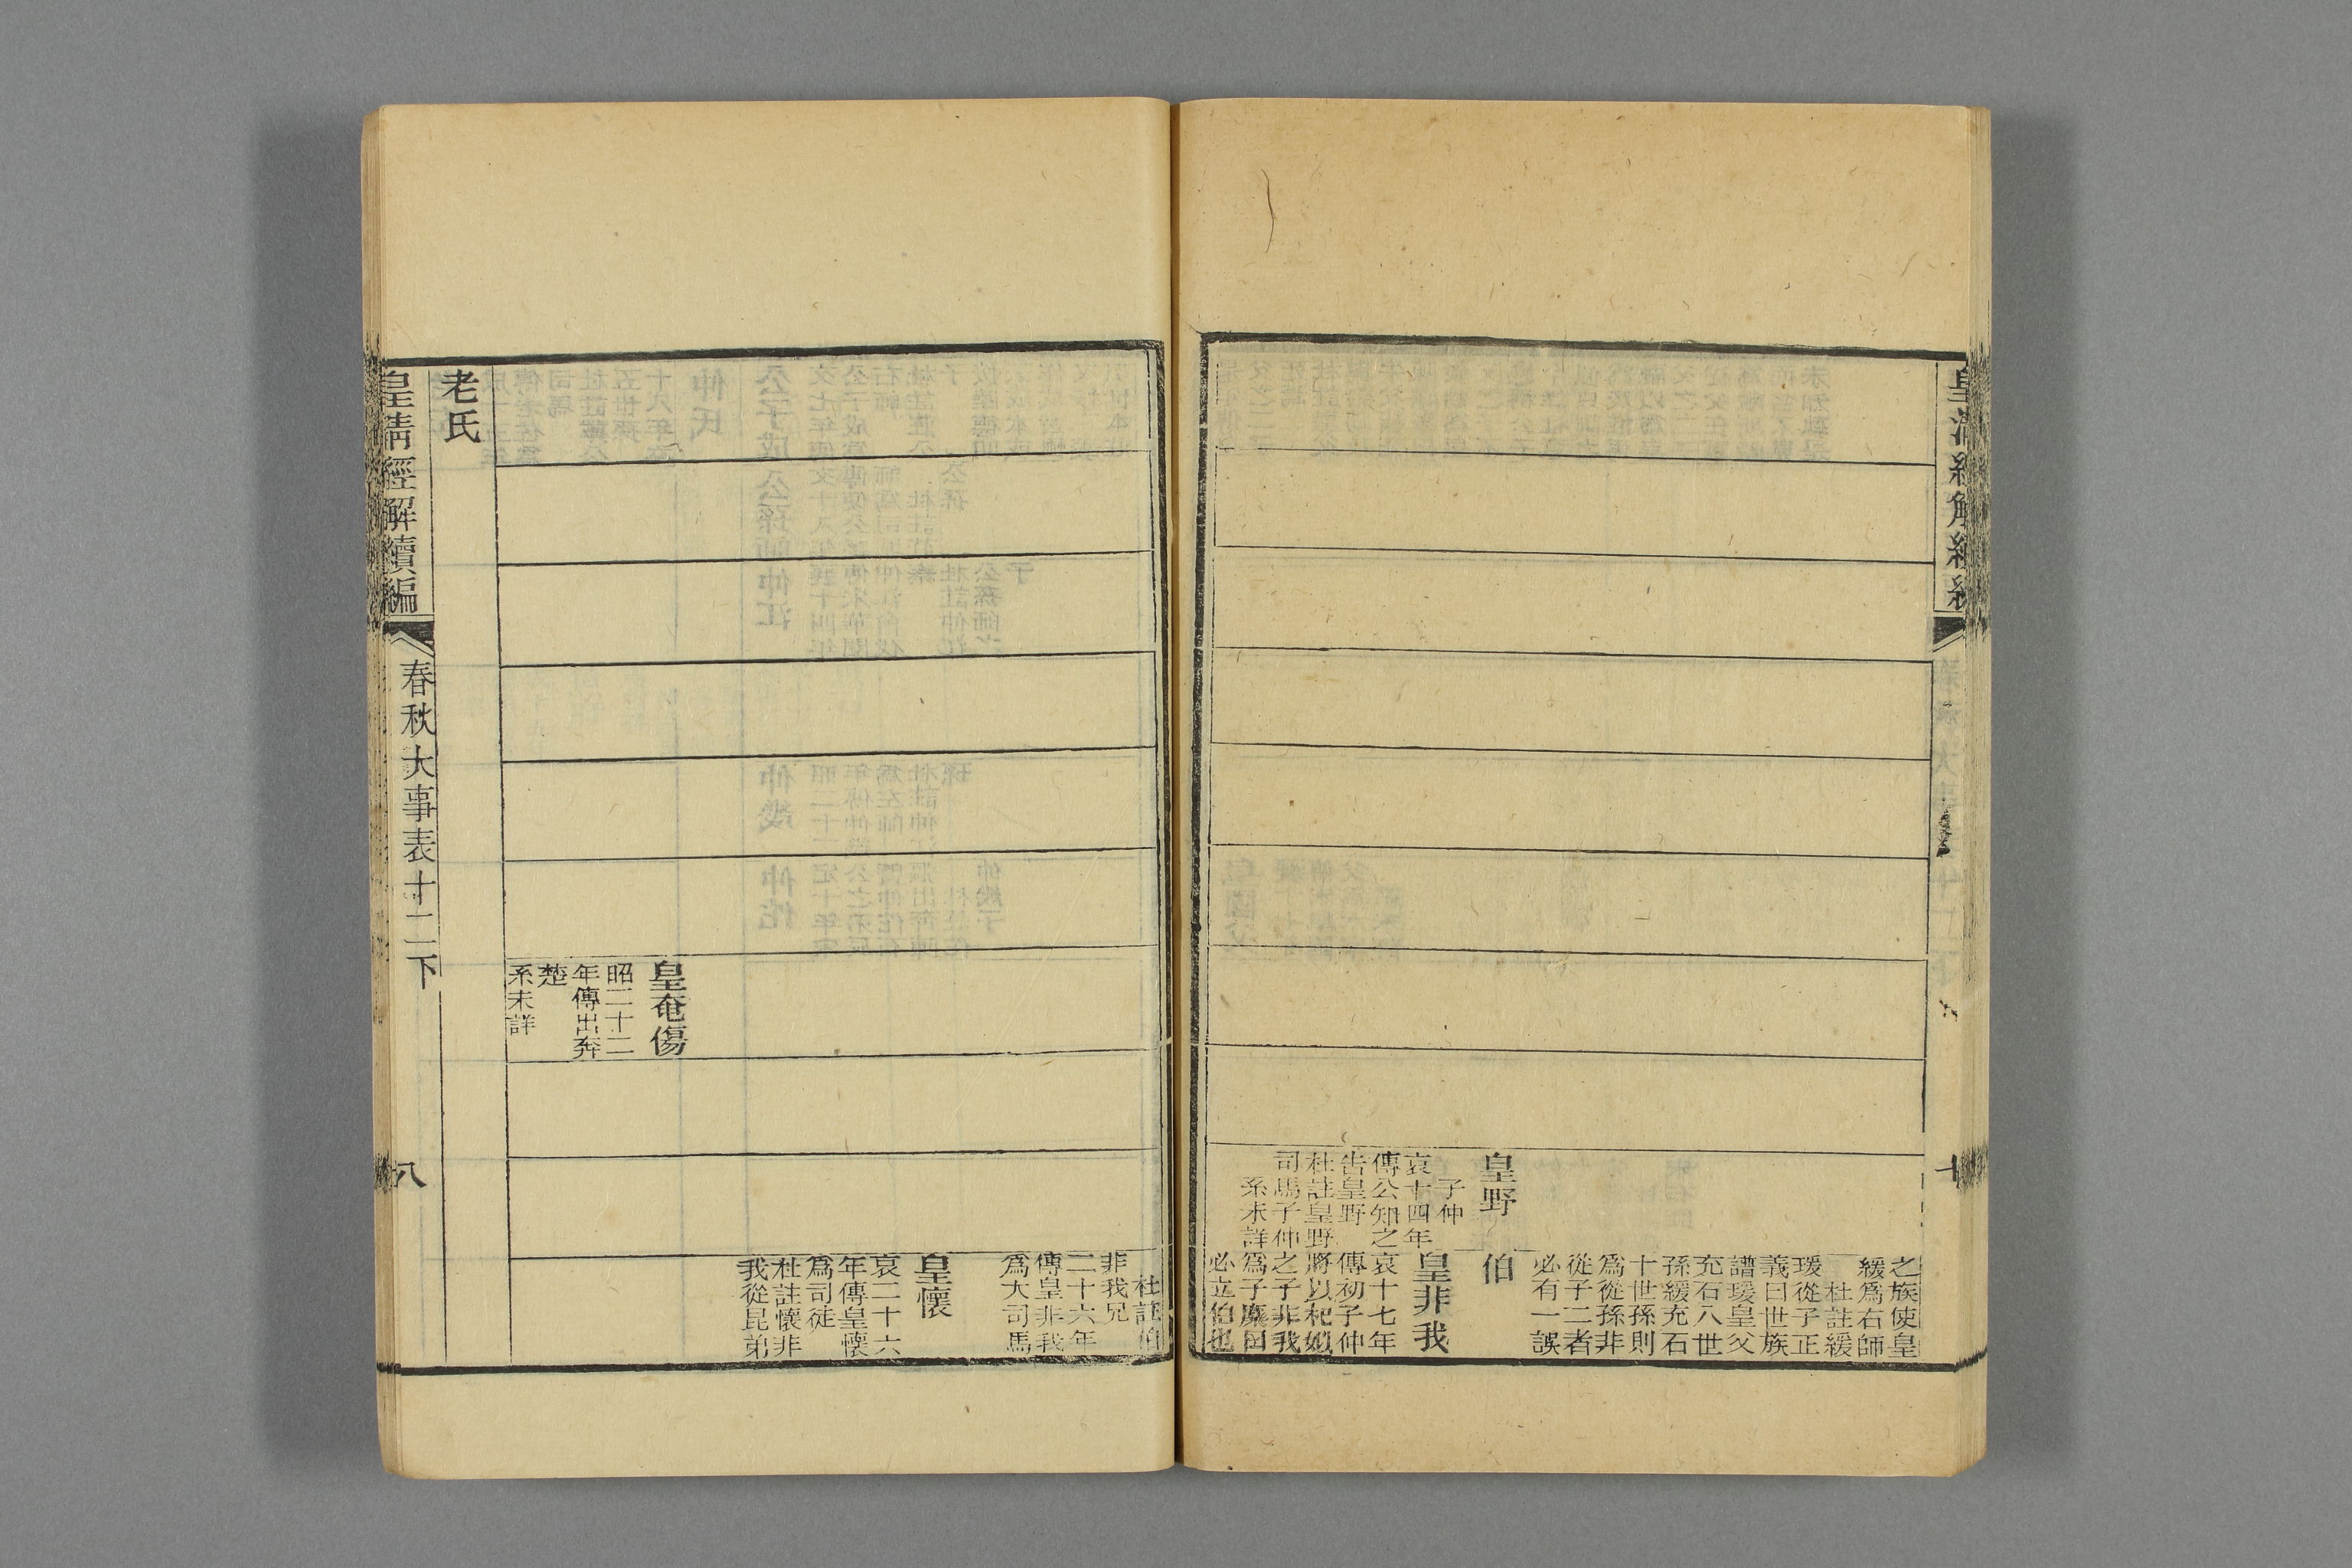 皇野
子仲
哀十四年
傳公知之
告皇野
杜註皇野
司馬子仲
系未詳
之族使皇
緩爲右師
杜註緩
瑗從子正
義曰世族
譜瑗皇父
充石八世
孫緩充石
十世孫則
爲從孫非
從子二者
必有一誤
伯
皇非我
哀十七年
傳初子仲
將以杞姒
之子非我
爲子麇曰
必立伯也
杜註伯
非我兄
二十六年
傳皇非我
爲大司馬
皇懷
哀二十六
年傳皇懷
爲司徒
杜註懷非
我從昆弟
皇奄傷
昭二十二
年傳出奔
楚
系未詳
老氏
皇清經解續編
春秋大事表十二下
八